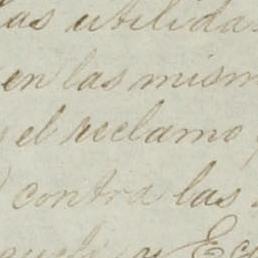 las utilida
en las mism
el reclamo
contra las
y Ec